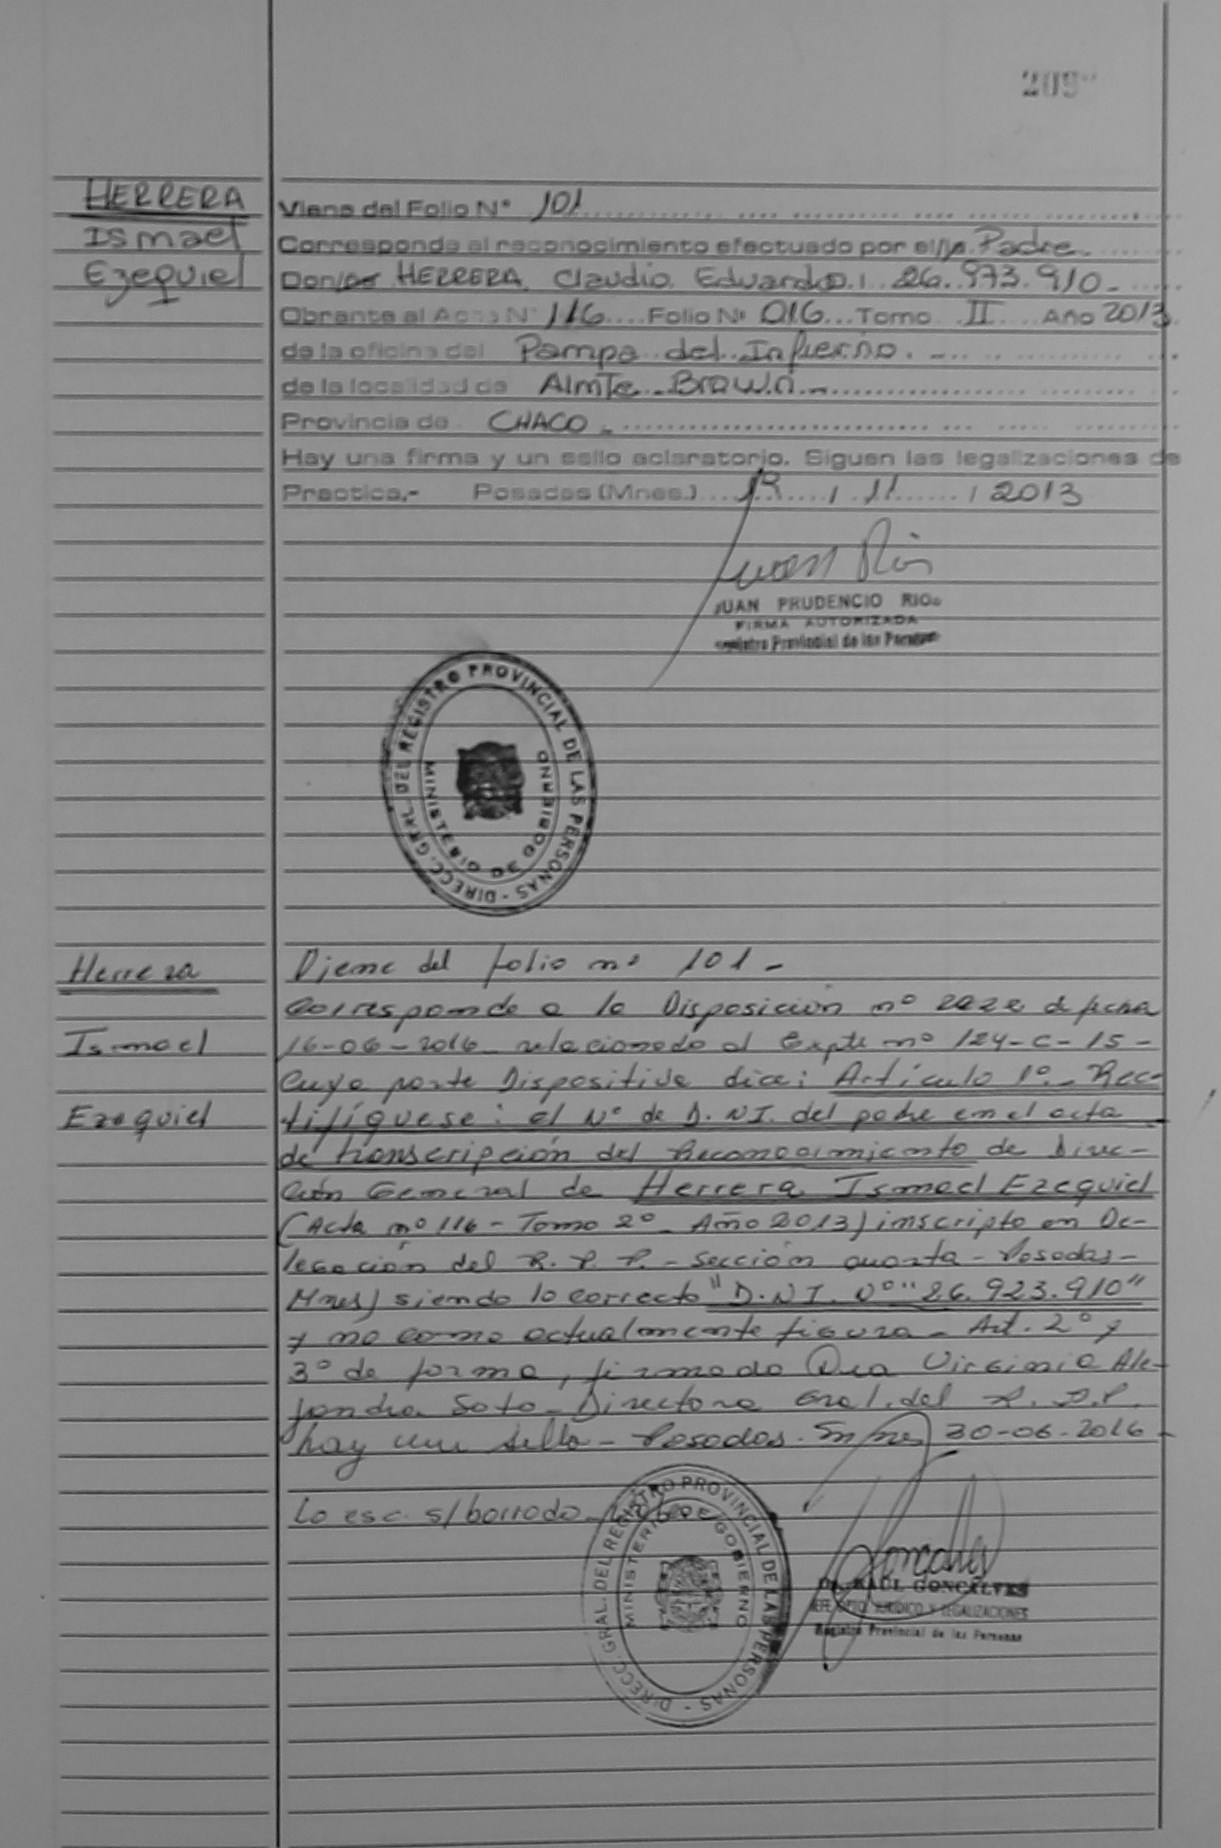 209
HERRERA
Ismael
Ezequiel
Viene del Folio Nº 101
Corresponde al reconocimiento efectuado por el/la Padre
Don/ña HERRERA, Claudio Eduardo, 26.973.910-
Obrante al Acta Nº 116 Folio Nº 016 Tomo II Año 2013
de la oficina del Pampa del Infierno. -
de la localidad de Almte Brown -
Provincia de CHACO -
Hay una firma y un sello aclaratorio. Siguen las legalizaciones de
Practica.- Posadas (Mnes.) 19 / 11 / 2013
JUAN PRUDENCIO RIOS
FIRMA AUTORIZADA
Registro Provincial de las Personas
DIRECC. GRAL. DEL REGISTRO PROVINCIAL DE LAS PERSONAS -
MINISTERIO DE GOBIERNO
Herrera
Ismael
Ezequiel
Viene del folio nº 101 -
Corresponde a la Disposición nº 2222 d fecha
16-06-2016 relacionado al Expte nº 124-C-15-
Cuya parte Dispositiva dice: Artículo 1º- Rec-
tifíquese: el Nº de D.N.I. del padre en el acta
de transcripción del Reconocimiento de Direc-
ción General de Herrera Ismael Ezequiel
(Acta nº 116 - Tomo 2º Año 2013) inscripto en De-
legación del R. P. P. - Sección cuarta - Posadas -
Mnes) siendo lo correcto "D.N.I. Nº" 26.923.910"
y no como actualmente figura - Art. 2º y
3º de forma, firmado Dra Virginia Ale-
jandra Soto - Directora Gral. del R.P.P.
hay un sello - Posadas. 30-06-2016
Lo esc. s/borrado
DIRECC. GRAL. DEL REGISTRO PROVINCIAL DE LAS PERSONAS -
MINISTERIO DE GOBIERNO
Dr. RAUL GONCALVES
JEFE DPTO. JURIDICO Y LEGALIZACIONES
Registro Provincial de las Personas